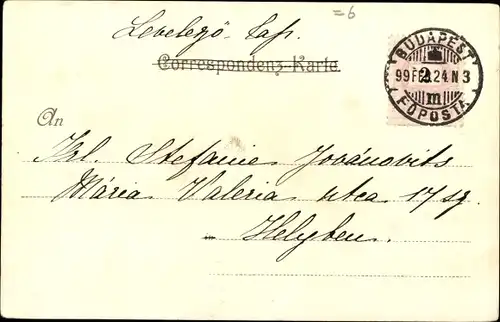 =6
Levelező-Lap.
Correspondenz-Karte.
BUDAPEST
99 FEB. 24. N3
2
m
FŐPOSTA
An
Frl. Stefanie Jovánovits
Mária Valeria utca 17 sz.
Helyben.